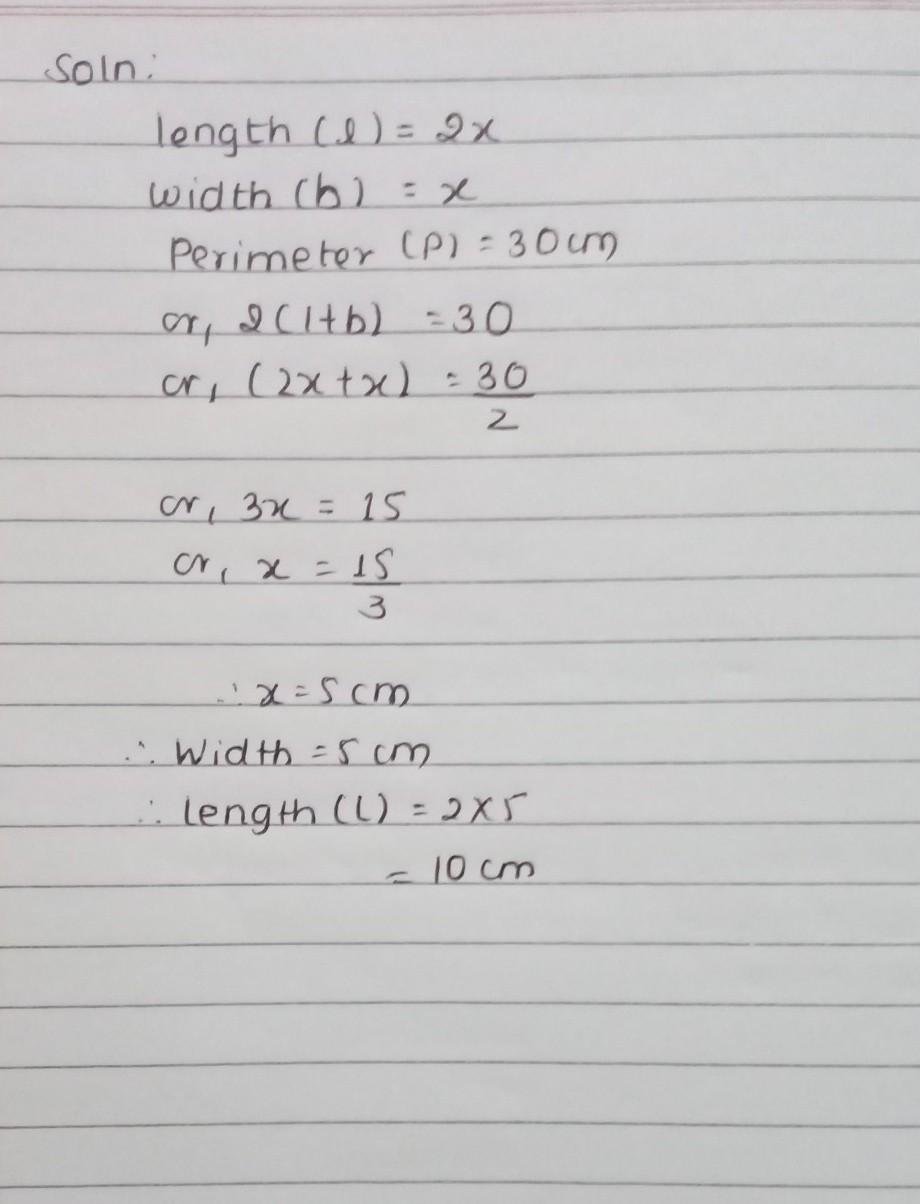 Soln:
length (l) = 2x
width (b) = x
Perimeter (P) = 30cm
or, 2(l+b) = 30
or, (2x+x) = 30/2
or, 3x = 15
or, x = 15/3
∴ x = 5 cm
∴ Width = 5 cm
∴ length (L) = 2×5
= 10 cm